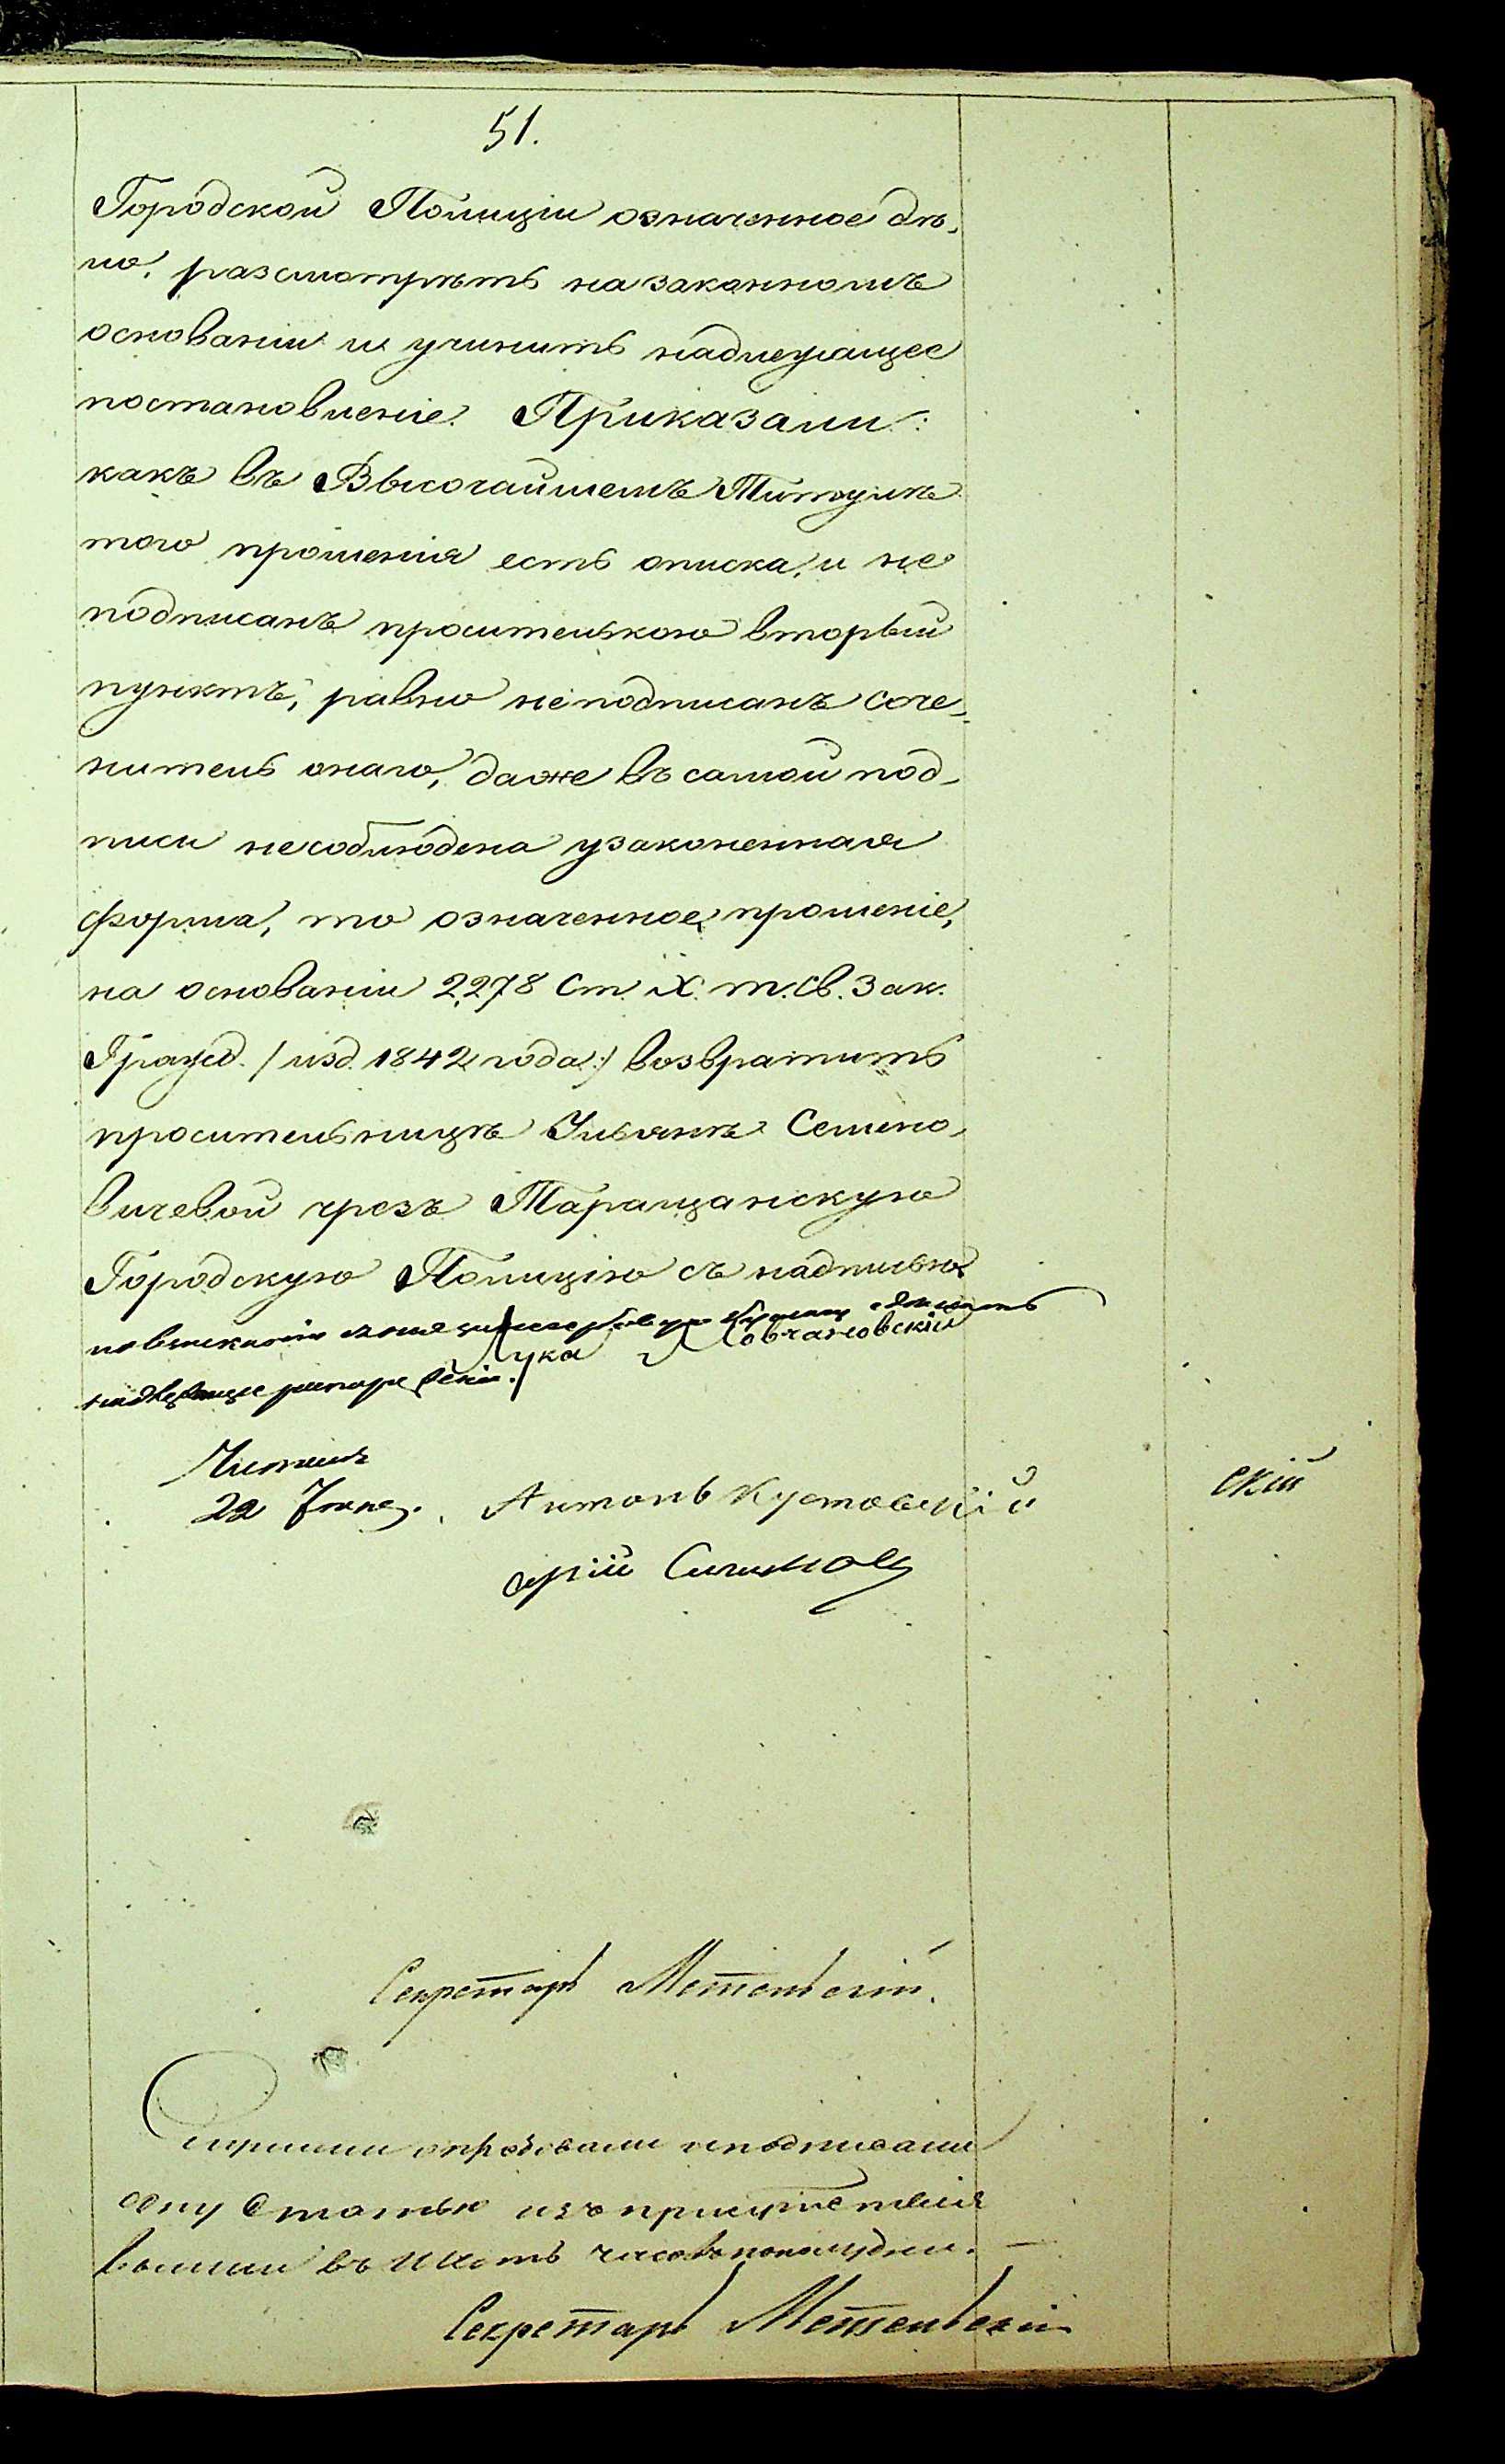 51.
Городской Полиціи означенное дѣ-
ло, разсмотрѣть на законномъ
основаніи и учинить надлежащее
постановленіе. Приказали:
какъ въ Высочайшемъ Титулѣ
того прошенія есть описка, и не
подписанъ просительною вторый
пунктъ, равно неподписанъ сочи-
нитель онаго, даже въ самой под-
писи несоблюдена узаконенная
форма, то означенное прошеніе,
на основаніи 2278 Ст. X. т. Св. Зак.
Гражд. /: изд. 1842 года :/ возвратить
просительницѣ Ульянѣ Семено-
вичевой чрезъ Таращанскую
Городскую Полицію съ надписью
о взысканіи гербовую бумагу сдѣлать
надлежащее распоряженіе.
Лука Ловчановскій
Читалъ
22 Іюня. Антонъ Кустовскій
скій
Секретарь
Слушали опробовали и подписали
одну Статью изъ присутствія
вышли въ шесть часовъ пополудни.
Секретарь